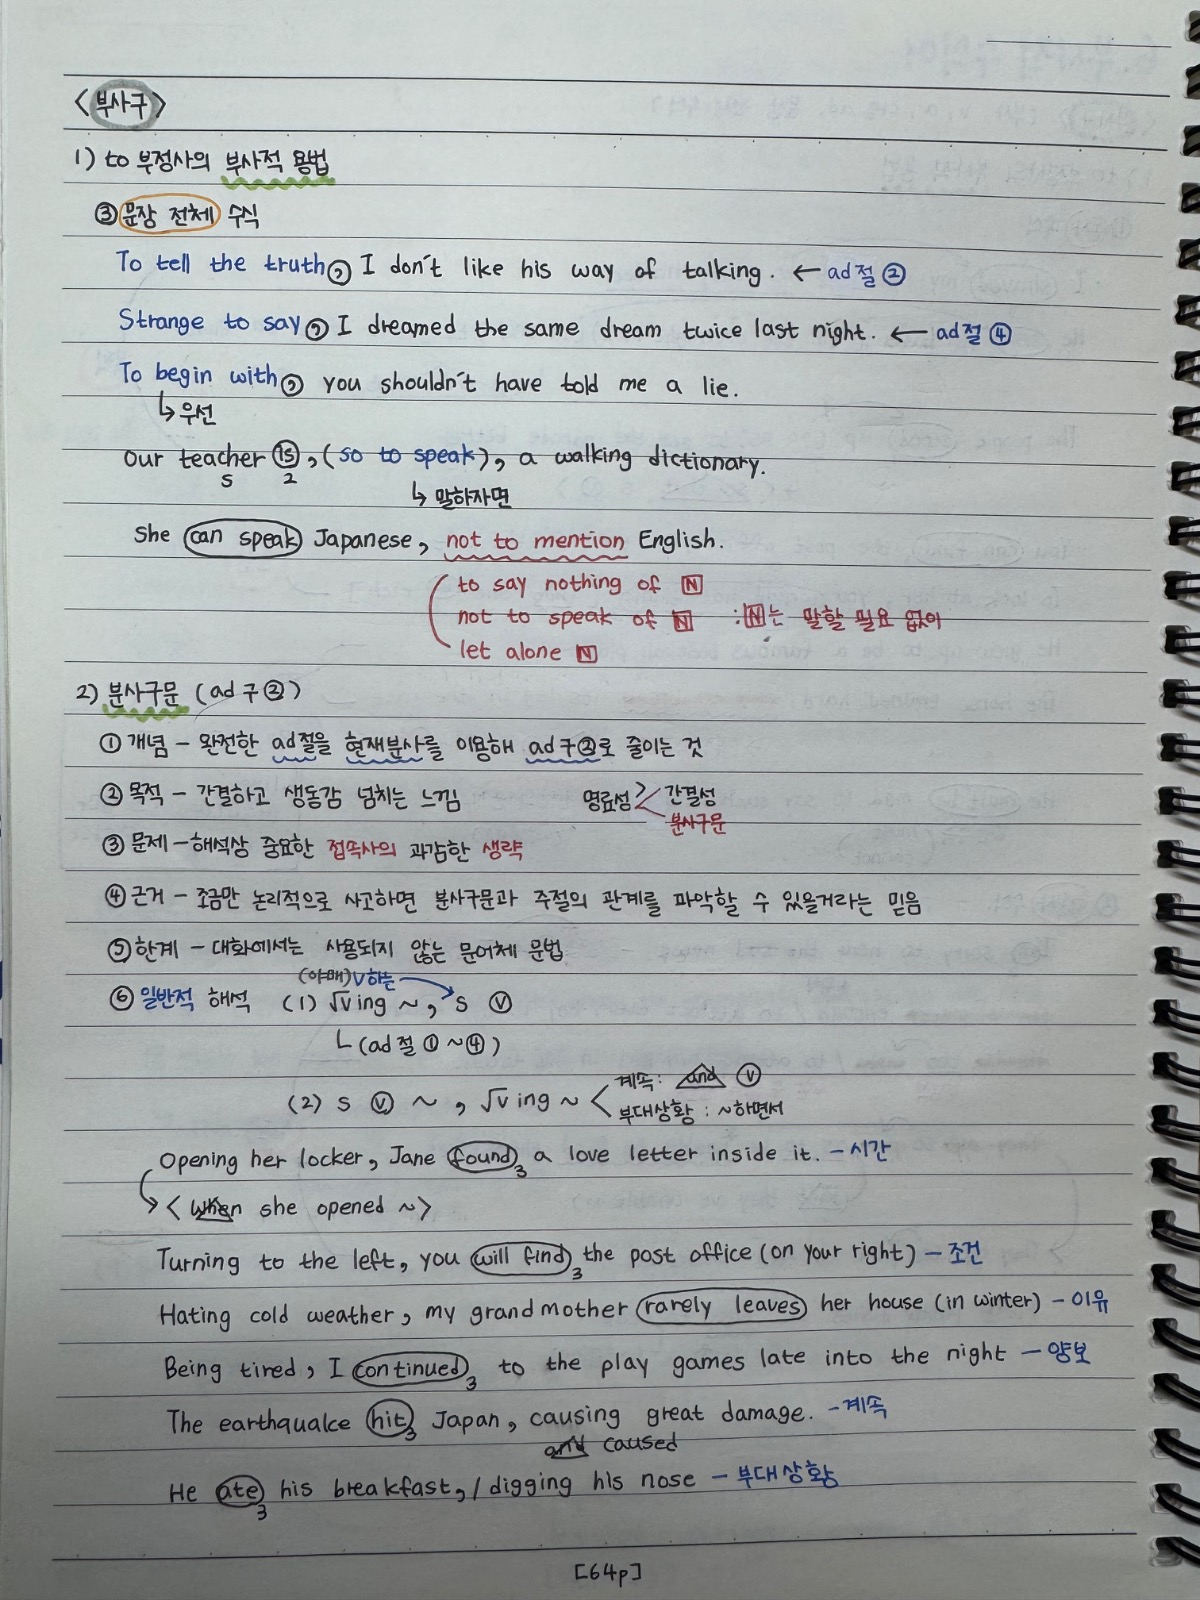 <부사구>
1) to 부정사의 부사적 용법
③ 문장 전체 수식
To tell the truth, I don't like his way of talking. ← ad절 ②
Strange to say, I dreamed the same dream twice last night. ← ad절 ④
To begin with, you shouldn't have told me a lie.
↳ 우선
Our teacher is, (so to speak), a walking dictionary.
S 2
↳ 말하자면
She can speak Japanese, not to mention English.
to say nothing of N
not to speak of N : N는 말할 필요 없이
let alone N
2) 분사구문 (ad구②)
① 개념 - 완전한 ad절을 현재분사를 이용해 ad구②로 줄이는 것
② 목적 - 간결하고 생동감 넘치는 느낌 명료성 > 간결성
분사구문
③ 문제 - 해석상 중요한 접속사의 과감한 생략
④ 근거 - 조금만 논리적으로 사고하면 분사구문과 주절의 관계를 파악할 수 있을거라는 믿음
⑤ 한계 - 대화에서는 사용되지 않는 문어체 문법
(야매) V하는
⑥ 일반적 해석 (1) √ving ~, S Ⓥ
└ (ad절 ①~④)
(2) S Ⓥ ~, √ving ~ < 계속: and Ⓥ
부대상황 : ~하면서
Opening her locker, Jane found3 a love letter inside it. - 시간
< when she opened ~>
Turning to the left, you will find3 the post office (on your right) - 조건
Hating cold weather, my grandmother rarely leaves her house (in winter) - 이유
Being tired, I continued3 to the play games late into the night - 양보
The earthqualce hit3 Japan, causing great damage. - 계속
and caused
He ate3 his breakfast, / digging his nose - 부대상황
[64p]